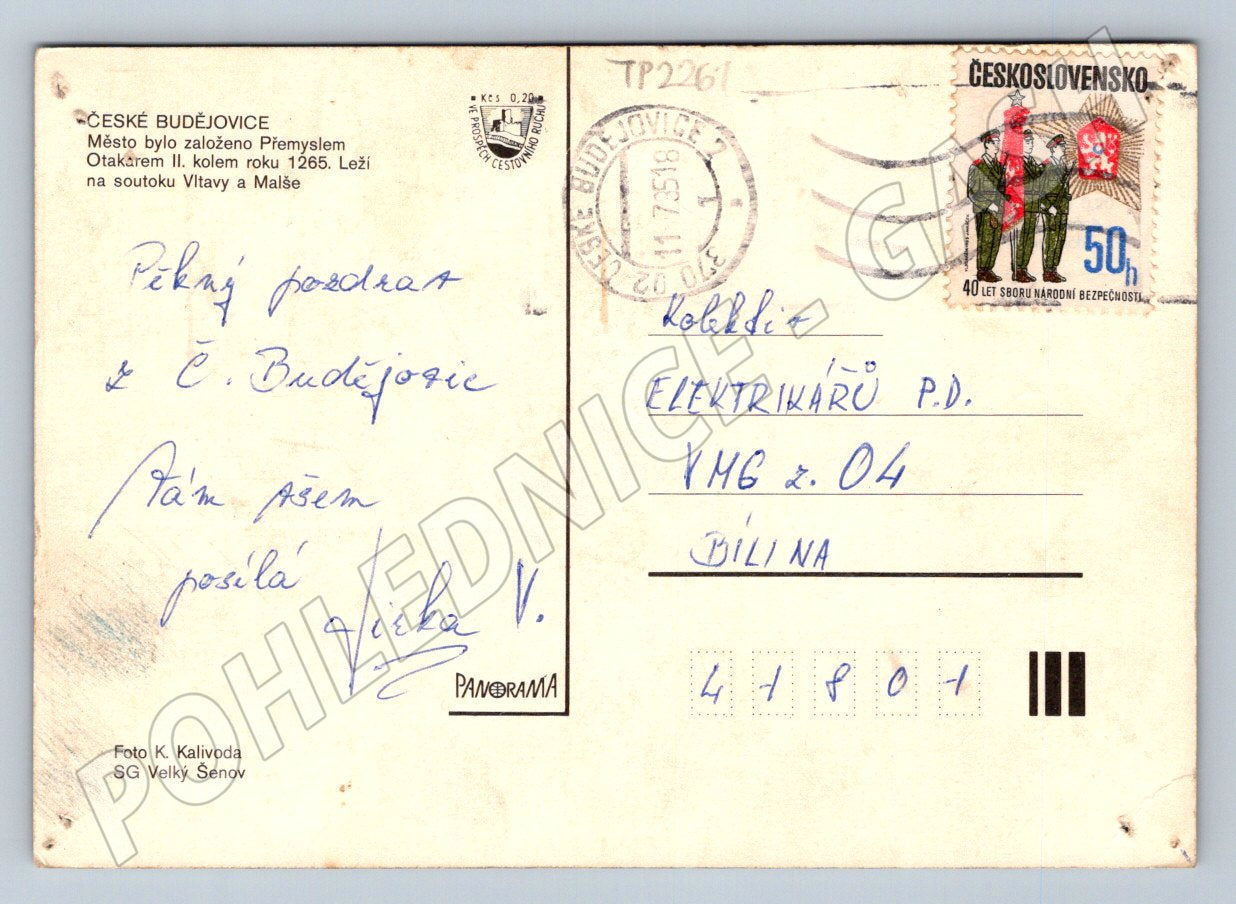 ČESKÉ BUDĚJOVICE
Město bylo založeno Přemyslem
Otakarem II. kolem roku 1265. Leží
na soutoku Vltavy a Malše
Kčs 0,20
VE PROSPĚCH CESTOVNÍHO RUCHU
Pěkný pozdrav
z Č. Budějovic
Vám všem
posílá
Jirka V.
PANORAMA
Foto K. Kalivoda
SG Velký Šenov
TP2261
370 92 ČESKÉ BUDĚJOVICE 2
11.7.85 18
1
ČESKOSLOVENSKO
50h
40 LET SBORU NÁRODNÍ BEZPEČNOSTI
Kolektiv
ELEKTRIKÁŘŮ P.D.
VMG z. 04
BÍLINA
41801
POHLEDNICE - GACH